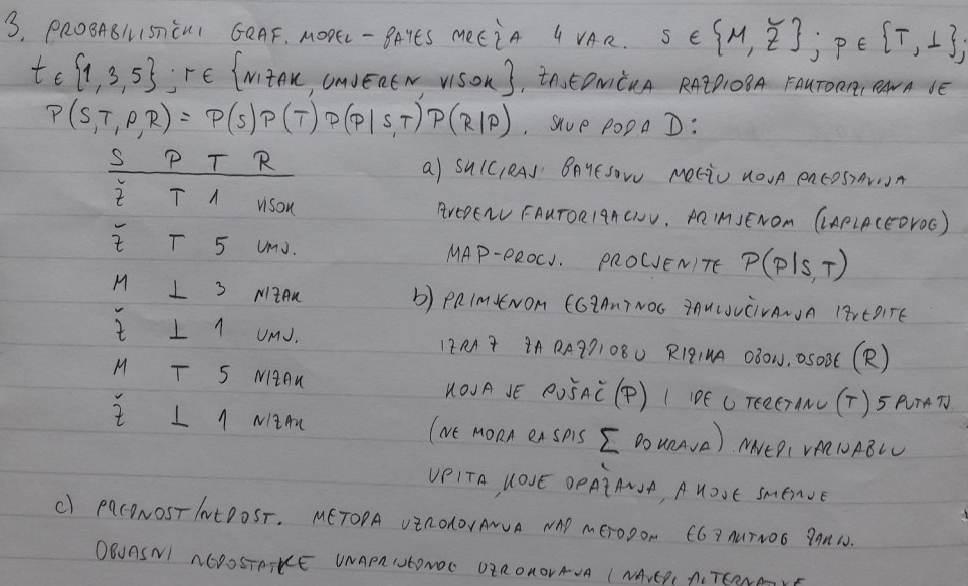 3. PROBABILISTIČKI GRAF. MODEL – BAYES MREŽA 4 VAR. S ∈ {M, Ž}; P ∈ {T, ⊥};
t ∈ {1, 3, 5}; r ∈ {NIZAK, UMJEREN, VISOK}. ZAJEDNIČKA RAZDIOBA FAKTORIZIRANA JE
P(S,T,P,R) = P(S)P(T)P(P|S,T)P(R|P). SKUP PODA D:
S P T R
Ž T 1 VISOK
Ž T 5 UMJ.
M ⊥ 3 NIZAK
Ž ⊥ 1 UMJ.
M T 5 NIZAK
Ž ⊥ 1 NIZAK
a) SKICIRAJ BAYESOVU MREŽU KOJA PREDSTAVLJA
ZVEDENU FAKTORIZACIJU. PRIMJENOM (LAPLACEOVOG)
MAP-PROCJ. PROCJENITE P(P|S,T)
b) PRIMJENOM EGZAKTNOG ZAKLJUČIVANJA IZVEDITE
IZRAZ ZA RAZDIOBU RIZIKA OBOLJ. OSOBE (R)
KOJA JE PUŠAČ (P) I IDE U TERETANU (T) 5 PUTA TJ
(NE MORA RASPIS Σ DO KRAJA) NAVEDI VARIJABLU
UPITA, KOJE OPAŽANJA, A KOJE SMETNJE
c) PREDNOST/NEDOST. METODA UZORKOVANJA NAD METODOM EGZAKTNOG ZAKLJ.
OBJASNI NEDOSTATKE UNAPRIJEDNOG UZORKOVANJA I NAVEDI ALTERNATIVE